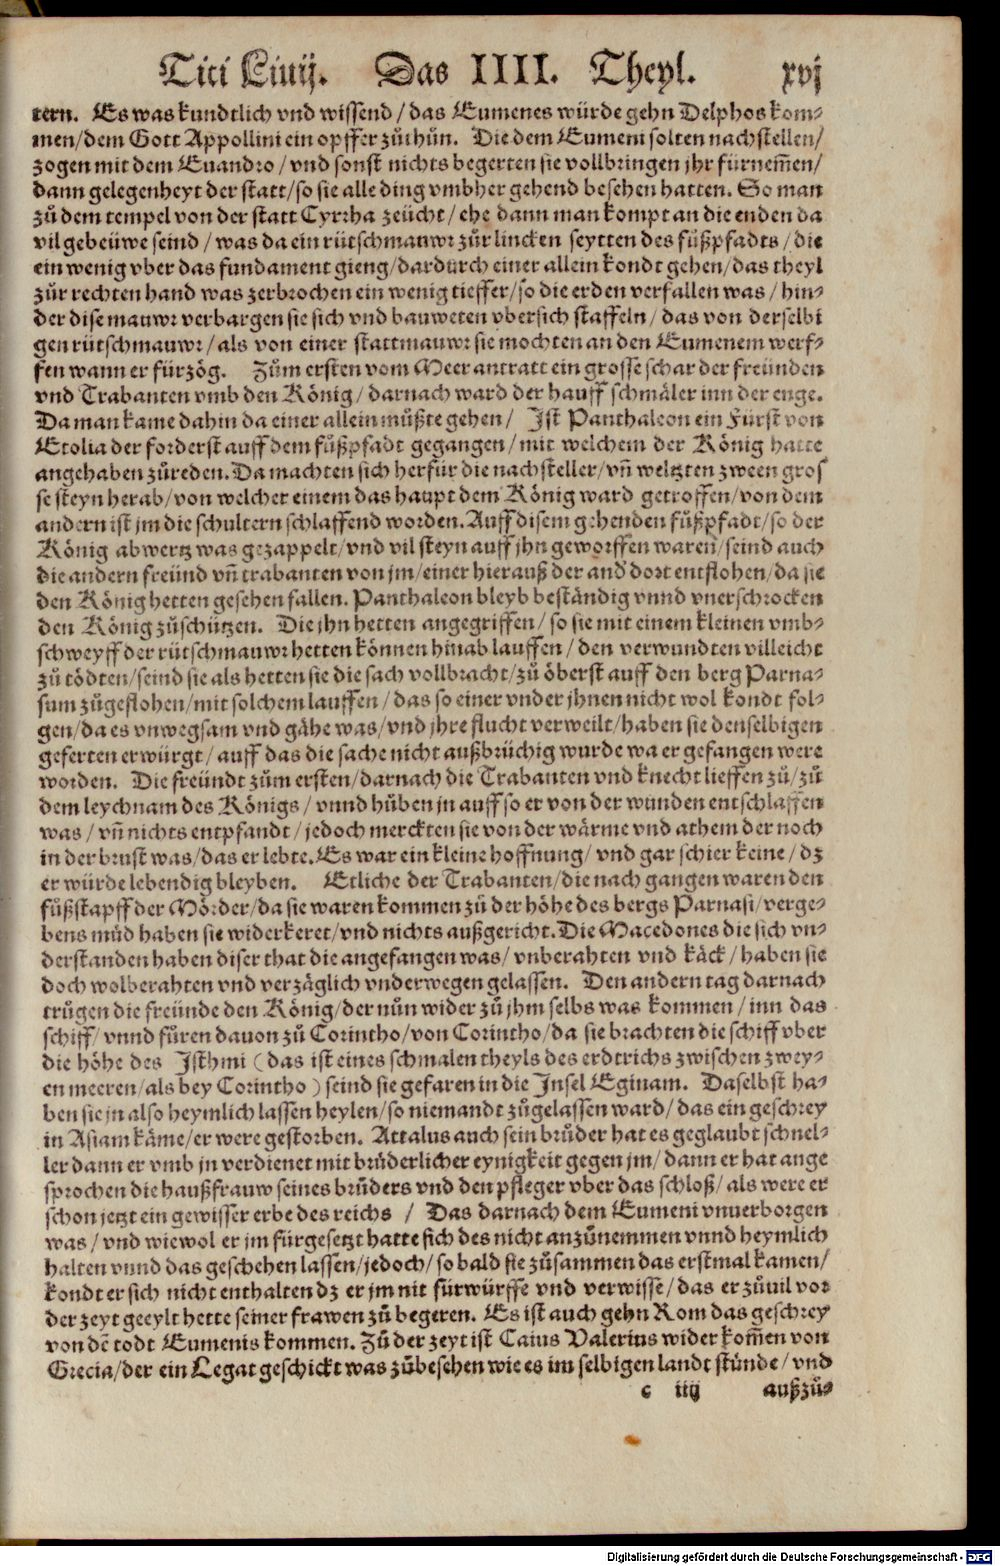 Titi Liuij. Das IIII. Theyl. xvj
tern. Es was kundtlich vnd wissend / das Eumenes würde gehn Delphos kom⸗
men / dem Gott Appollini ein opffer zůthůn. Die dem Eumeni solten nachstellen /
zogen mit dem Euandro / vnd sonst nichts begerten sie vollbringen jhr fürnem̃en /
dann gelegenheyt der statt / so sie alle ding vmbher gehend besehen hatten. So man
zů dem tempel von der statt Cyrrha zeücht / ehe dann man kompt an die enden da
vil gebeüwe seind / was da ein rütschmauwr zůr lincken seytten des fůßpfadts / die
ein wenig vber das fundament gieng / dardurch einer allein kondt gehen / das theyl
zůr rechten hand was zerbrochen ein wenig tieffer / so die erden verfallen was / hin⸗
der dise mauwr verbargen sie sich vnd bauweten vbersich staffeln / das von derselbi
gen rütschmauwr / als von einer stattmauwr sie mochten an den Eumenem werf⸗
fen wann er fürzög. Zům ersten vom Meer antratt ein grosse schar der freünden
vnd Trabanten vmb den König / darnach ward der hauff schmäler inn der enge.
Da man kame dahin da einer allein můßte gehen / Ist Panthaleon ein Fürst von
Etolia der forderst auff dem fůßpfadt gegangen / mit welchem der König hatte
angehaben zůreden. Da machten sich herfür die nachsteller / vñ weltzten zween gros
se steyn herab / von welcher einem das haupt dem König ward getroffen / von dem
andern ist jm die schultern schlaffend worden. Auff disem gehenden fůßpfadt / so der
König abwertz was gezappelt / vnd vil steyn auff jhn geworffen waren / seind auch
die andern freünd vñ trabanten von jm / einer hierauß der and dort entflohen / da sie
den König hetten gesehen fallen. Panthaleon bleyb beständig vnnd vnerschrocken
den König zůschützen. Die jhn hetten angegriffen / so sie mit einem kleinen vmb⸗
schweyff der rütschmauwr hetten können hinab lauffen / den verwundten villeicht
zů tödten / seind sie als hetten sie die sach vollbracht / zů öberst auff den berg Parna⸗
sum zůgeflohen / mit solchem lauffen / das so einer vnder jhnen nicht wol kondt fol⸗
gen / da es vnwegsam vnd gähe was / vnd jhre flucht verweilt / haben sie denselbigen
geferten erwürgt / auff das die sache nicht außbrüchig wurde wa er gefangen were
worden. Die freündt zům ersten / darnach die Trabanten vnd knecht lieffen zů / zů
dem leychnam des Königs / vnnd hůben jn auff so er von der wunden entschlaffen
was / vñ nichts entpfandt / jedoch merckten sie von der wärme vnd athem der noch
in der brust was / das er lebte. Es war ein kleine hoffnung / vnd gar schier keine / dz
er würde lebendig bleyben. Etliche der Trabanten / die nach gangen waren den
fůßstapff der Mörder / da sie waren kommen zů der höhe des bergs Parnasi / verge⸗
bens můd haben sie widerkeret / vnd nichts außgericht. Die Macedones die sich vn⸗
derstanden haben diser that die angefangen was / vnberahten vnd käck / haben sie
doch wolberahten vnd verzäglich vnderwegen gelassen. Den andern tag darnach
trůgen die freünde den König / der nůn wider zů jhm selbs was kommen / inn das
schiff / vnnd fůren dauon zů Corintho / von Corintho / da sie brachten die schiff vber
die höhe des Isthmi ( das ist eines schmalen theyls des erdtrichs zwischen zwey⸗
en meeren / als bey Corintho ) seind sie gefaren in die Insel Eginam. Daselbst ha⸗
ben sie jn also heymlich lassen heylen / so niemandt zůgelassen ward / das ein geschrey
in Asiam käme / er were gestorben. Attalus auch sein brůder hat es geglaubt schnel⸗
ler dann er vmb jn verdienet mit brůderlicher eynigkeit gegen jm / dann er hat ange
sprochen die haußfrauw seines brůders vnd den pfleger vber das schloß / als were er
schon jetzt ein gewisser erbe des reichs / Das darnach dem Eumeni vnuerborgen
was / vnd wiewol er jm fürgesetzt hatte sich des nicht anzůnemmen vnnd heymlich
halten vnnd das geschehen lassen / jedoch / so bald sie zůsammen das erstmal kamen /
kondt er sich nicht enthalten dz er jm nit fürwürffe vnd verwisse / das er zůuil vor
der zeyt geeylt hette seiner frawen zů begeren. Es ist auch gehn Rom das geschrey
von dē todt Eumenis kommen. Zů der zeyt ist Caius Valerius wider kom̃en von
Grecia / der ein Legat geschickt was zůbesehen wie es im selbigen landt stünde / vnd
c iiij außzů⸗
Digitalisierung gefördert durch die Deutsche Forschungsgemeinschaft - DFG